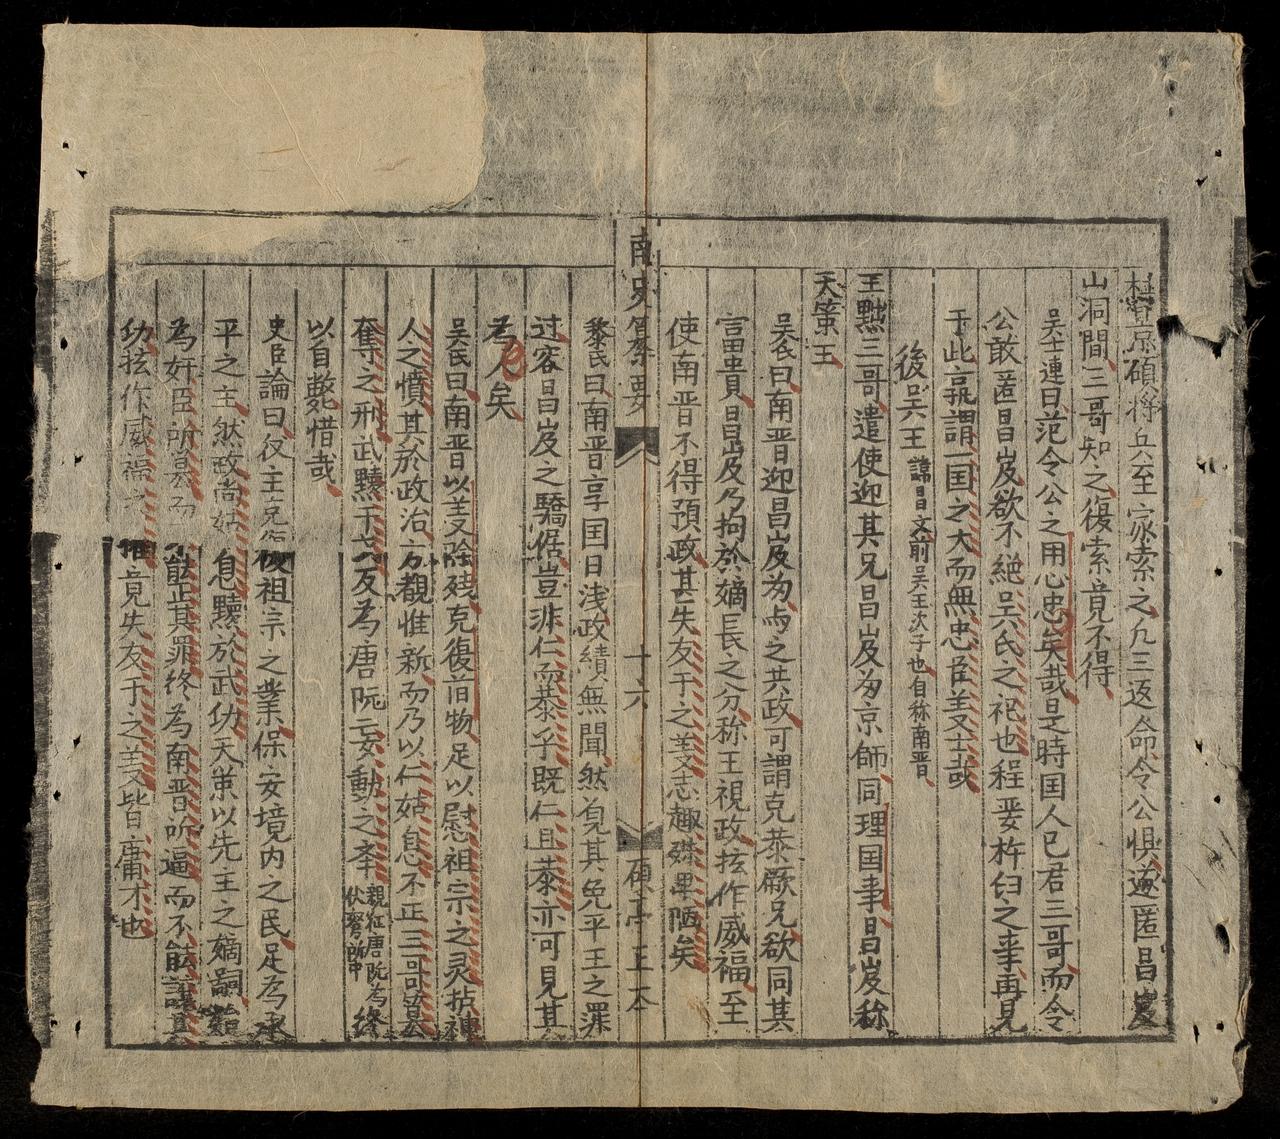 兵至家索之凡三返命令公惧遂匿昌岌
山洞間三哥知之復索竟不得
吳士連曰范令公之用心忠矣哉是時国人已君三哥而令
公敢匿昌岌欲不絶吳氏之祀也程嬰杵臼之事再見
于此孰謂一国之大而無忠臣義士哉
後吳王 諱昌文前吳王次子也自称南晋
王黜三哥遣使迎其兄昌岌为京師同理国事昌岌称
天策王
吳氏曰南晋迎昌岌为与之共政可謂克恭厥兄欲同其
富貴昌岌乃拘於嫡長之分称王視政抜作威福至
使南晋不得預政其失友于之義志趣殊卑陋矣
南史纂要
十六
碩亭正本
黎氏曰南晋享国日浅政績無聞然觀其免平王之罪
过容昌岌之驕倨豈非仁而恭乎既仁且恭亦可見其
為人矣
吳氏曰南晋以義除残克復旧物足以慰祖宗之灵
人之憤其於政治方觀惟新而乃以仁姑息不正三哥
奪之刑武黷于為唐阮妄動之 親征唐阮為伏弩所中 終
以自斃惜哉
史臣論曰 主 後祖宗之業保安境内之民足為
平之主然政尚姑息黷於武功天策以先王之嫡嗣
為奸臣所 能正其罪終為南晋所逼而不能
功抜作威福之 竟失友于之義皆庸才也